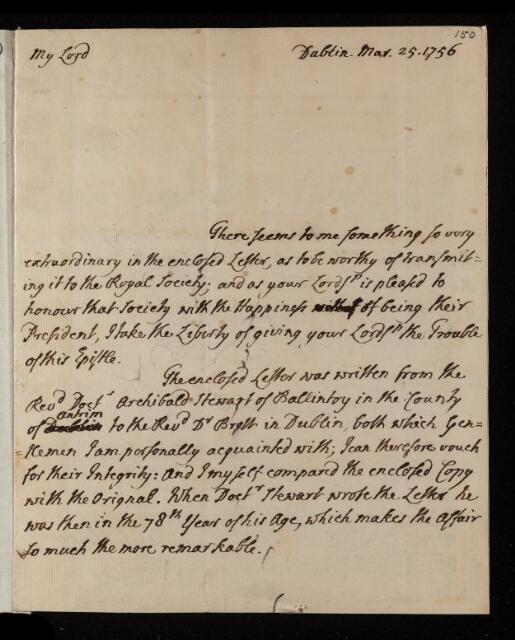 150
My Lord Dublin. Mar. 25. 1756
There seems to me something so very
extraordinary in the enclosed Letter, as to be worthy of transmit=
ing it to the Royal Society; and as your Lordsp. is pleased to
honour that Society with the Happiness of being their
President, I take the Liberty of giving your Lordsp. the Trouble
of this Epistle.
The enclosed Letter was written from the
Revd. Doctr. Archibald Stewart of Ballintoy in the County
of Dublin Antrim to the Revd. Dr. Brett in Dublin, both which Gen=
tlemen I am personally acquainted with; I can therefore vouch
for their Integrity: And I myself compared the enclosed Copy
with the Orignal. When Doctr. Stewart wrote the Letter he
was then in the 78th Year of his Age, which makes the Affair
so much the more remarkable.